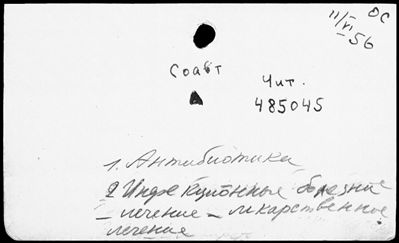 ОС
11/VI
–56
Соавт
Чит.
485045
1. Антибиотики
2 Инфекционные болезни
– лечение – лекарственное
лечение